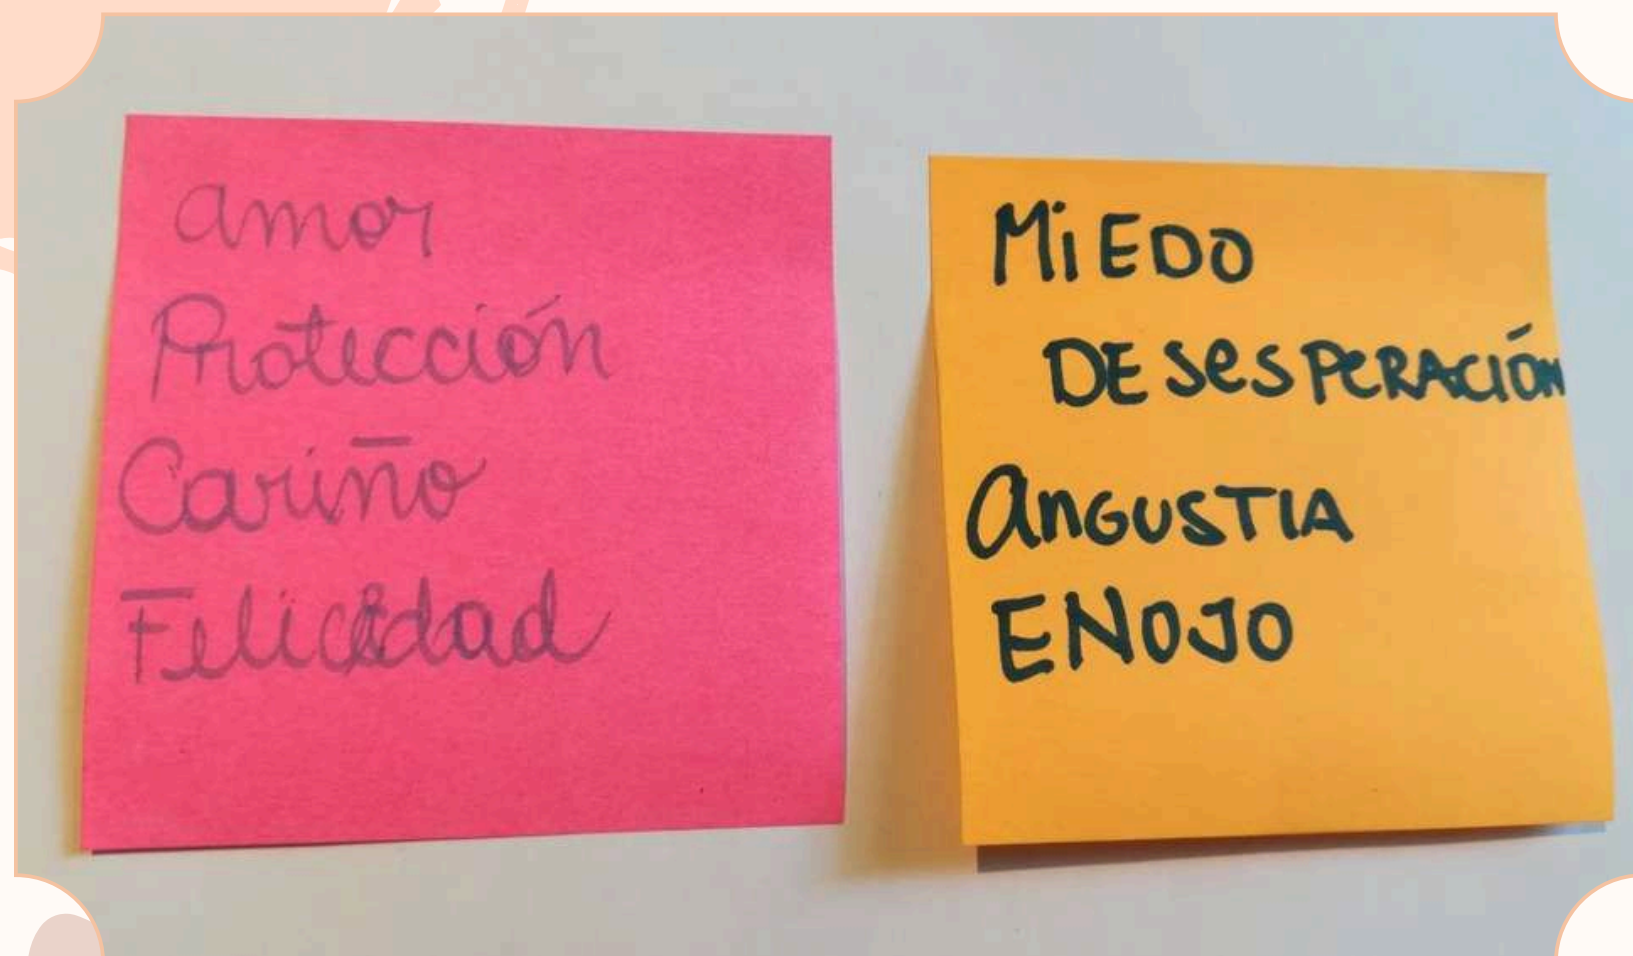 amor
Protección
Cariño
Felicidad
MiEDO
DESesPeRACIÓN
anGUSTIA
ENOJO